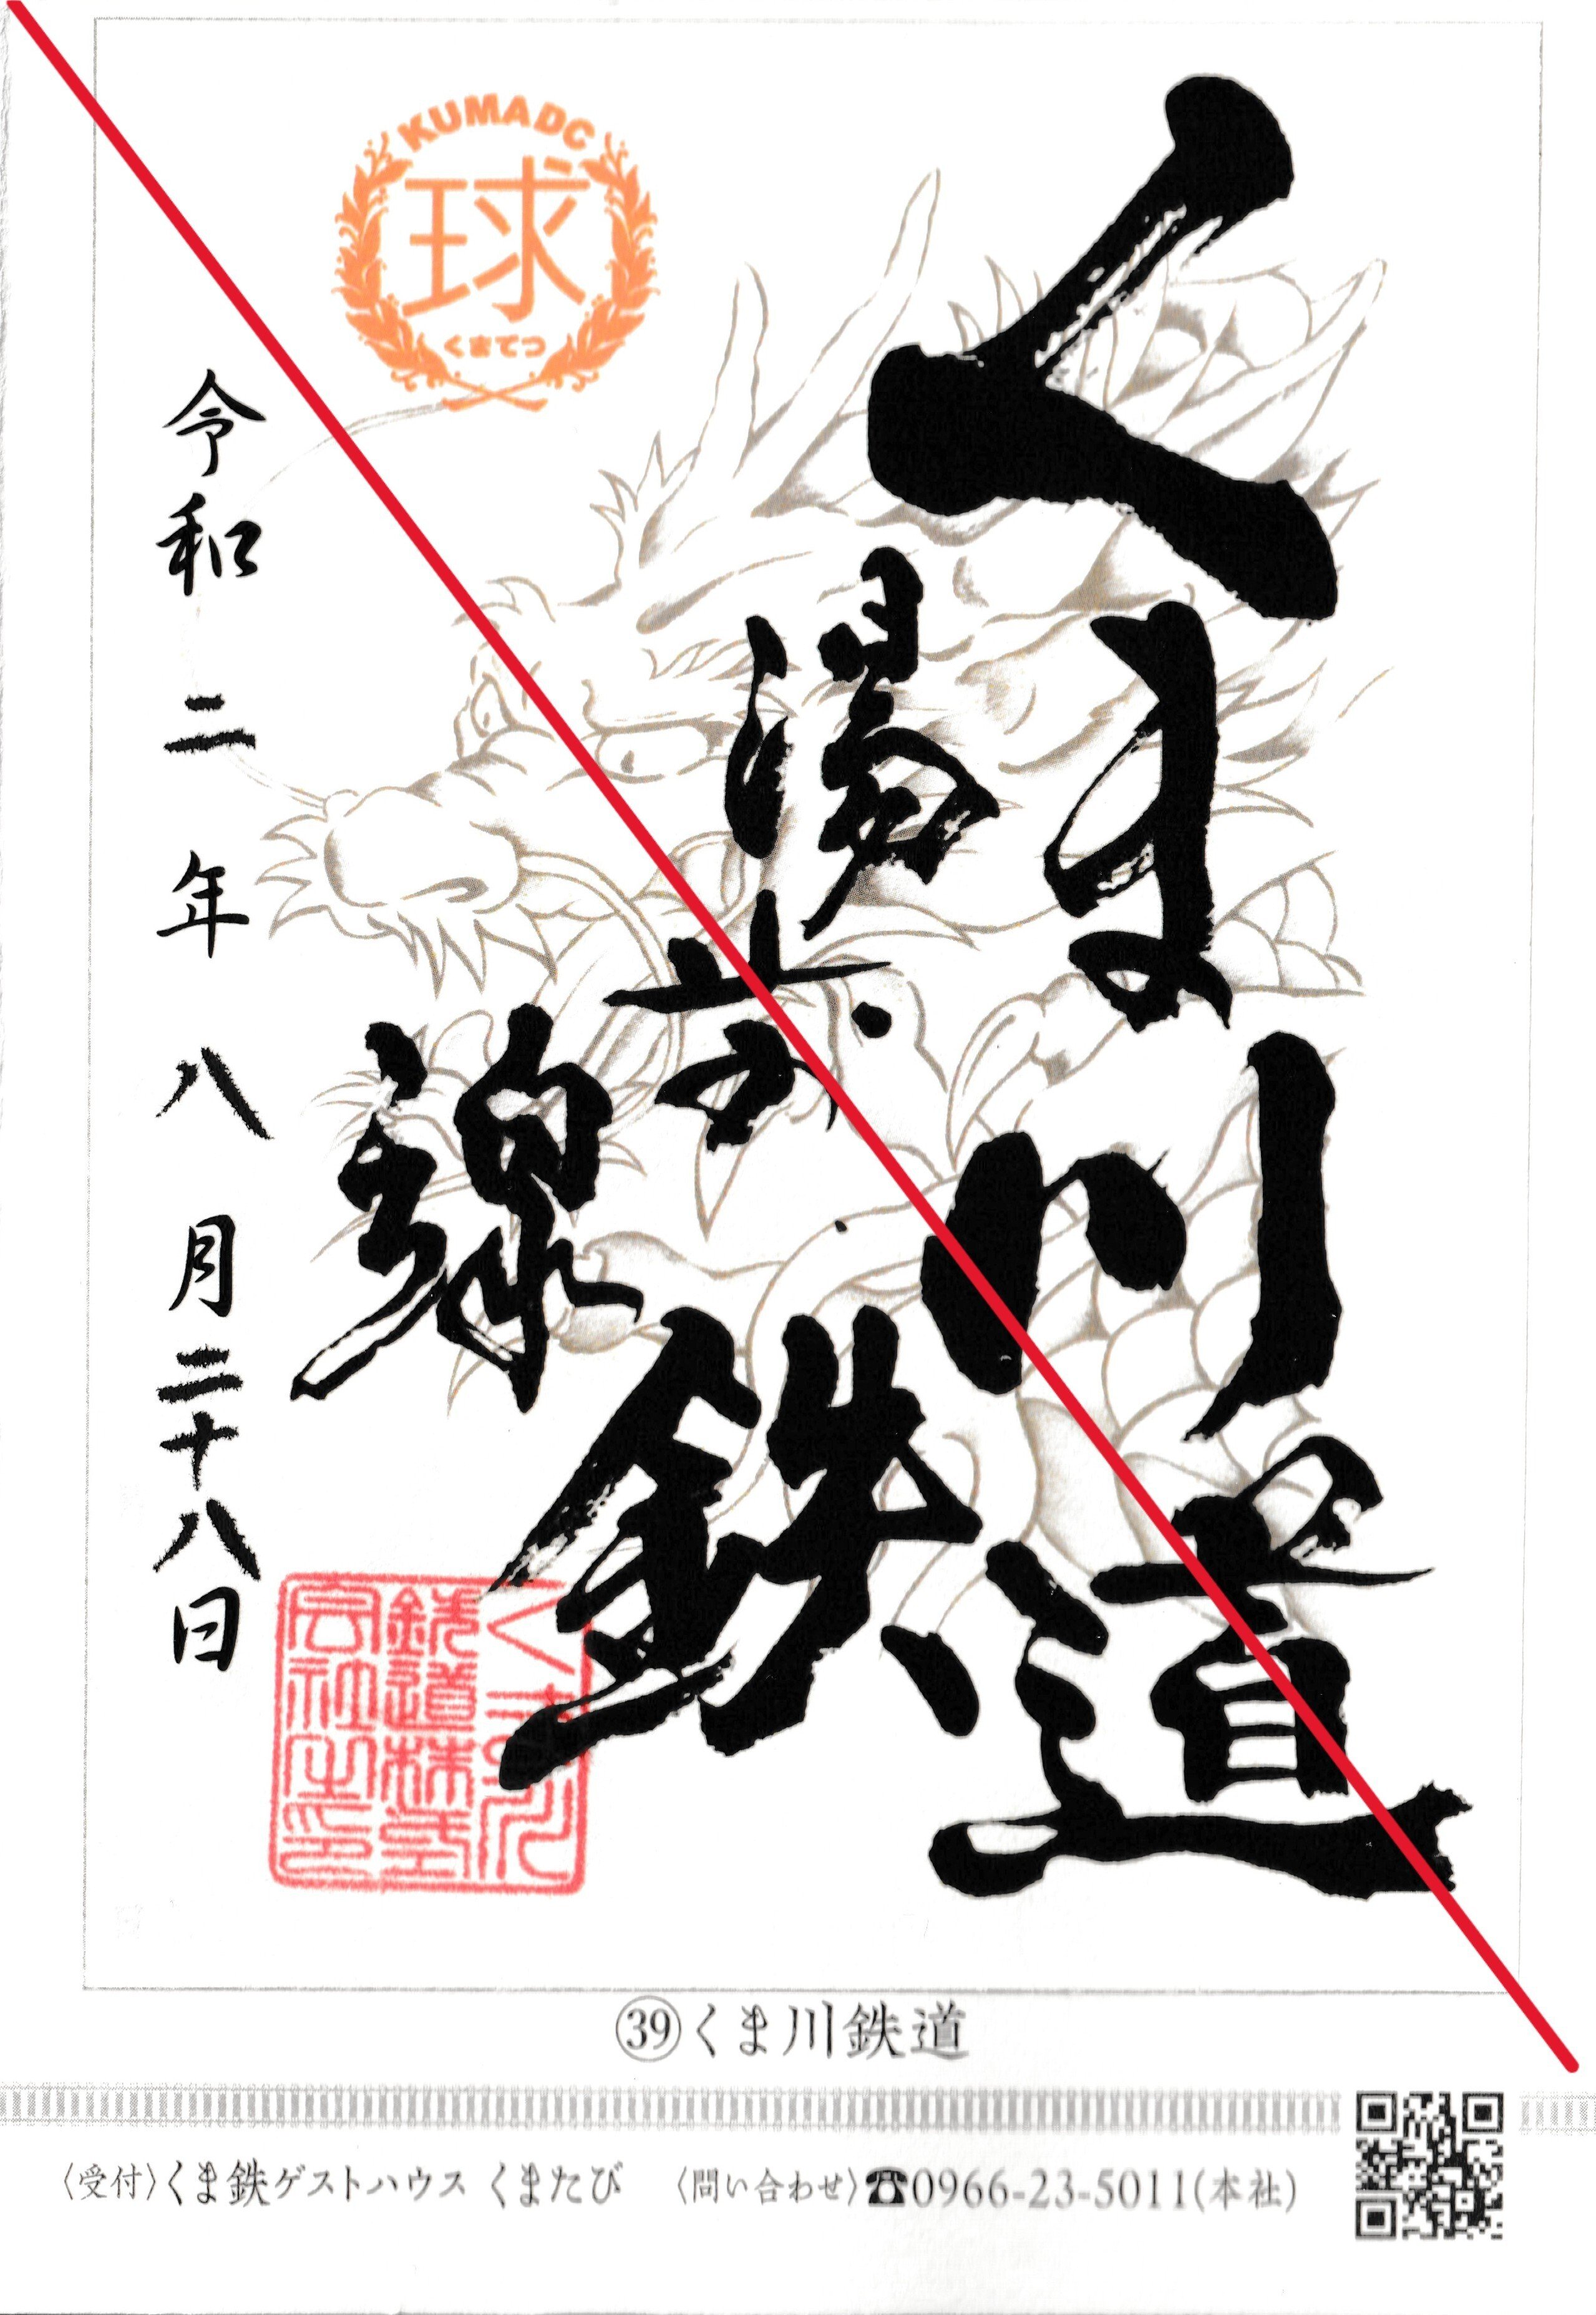 KUMADC
球
くまてつ
くま川鉄道
湯前線
令和二年八月二十八日
くま川
鉄道株式
会社之印
㊴くま川鉄道
〈受付〉くま鉄ゲストハウス くまたび 〈問い合わせ〉☎0966-23-5011(本社)